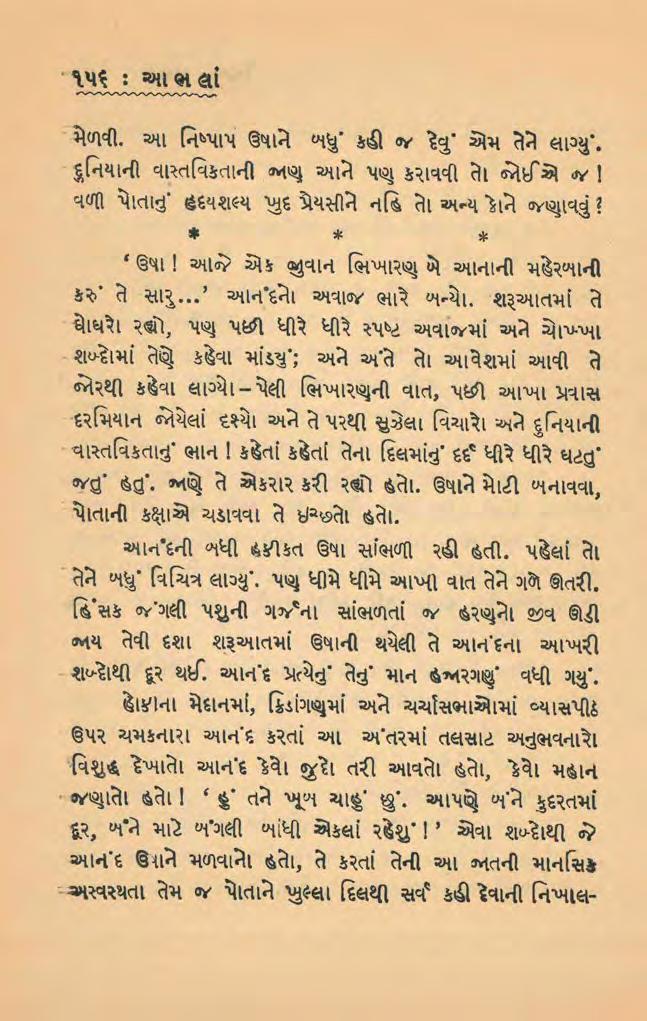 ૧૫૬ : આભલાં
મેળવી. આ નિષ્પાપ ઉષાને બધું કહી જ દેવું એમ તેને લાગ્યું.
દુનિયાની વાસ્તવિકતાની જાણ આને પણ કરાવવી તો જોઈએ જ !
વળી પોતાનું હૃદયશલ્ય ખુદ પ્રેયસીને નહિ તો અન્ય કોને જણાવવું ?
* * *
‘ ઉષા ! આજે એક જુવાન ભિખારણ બે આનાની મહેરબાની
કરું તે સારુ...’ આનંદનો અવાજ ભારે બન્યો. શરૂઆતમાં તે
ઘોઘરો રહ્યો, પણ પછી ધીરે ધીરે સ્પષ્ટ અવાજમાં અને ચોખ્ખા
શબ્દોમાં તેણે કહેવા માંડયું; અને અંતે તો આવેશમાં આવી તે
જોરથી કહેવા લાગ્યો – પેલી ભિખારણની વાત, પછી આખા પ્રવાસ
દરમિયાન જોયેલાં દૃશ્યો અને તે પરથી સુઝેલા વિચારો અને દુનિયાની
વાસ્તવિકતાનું ભાન ! કહેતાં કહેતાં તેના દિલમાંનું દર્દ ધીરે ધીરે ઘટતું
જતું હતું. જાણે તે એકરાર કરી રહ્યો હતો. ઉષાને મોટી બનાવવા,
પોતાની કક્ષાએ ચડાવવા તે ઇચ્છતો હતો.
આનંદની બધી હકીકત ઉષા સાંભળી રહી હતી. પહેલાં તો
તેને બધું વિચિત્ર લાગ્યું. પણ ધીમે ધીમે આખી વાત તેને ગળે ઊતરી.
હિંસક જંગલી પશુની ગર્જના સાંભળતાં જ હરણનો જીવ ઊડી
જાય તેવી દશા શરૂઆતમાં ઉષાની થયેલી તે આનંદના આખરી
શબ્દોથી દૂર થઈ. આનંદ પ્રત્યેનું તેનું માન હજારગણું વધી ગયું.
હોકીના મેદાનમાં, ક્રિડાંગણમાં અને ચર્ચાસભાઓમાં વ્યાસપીઠ
ઉપર ચમકનારા આનંદ કરતાં આ અંતરમાં તલસાટ અનુભવનારો
વિશુદ્ધ દેખાતો આનંદ કેવો જુદો તરી આવતો હતો, કેવો મહાન
જણાતો હતો ! ‘ હું તને ખૂબ ચાહું છું. આપણે બંને કુદરતમાં
દૂર, બંને માટે બંગલી બાંધી એકલાં રહેશું !’ એવા શબ્દોથી જે
આનંદ ઉષાને મળવાનો હતો, તે કરતાં તેની આ જાતની માનસિક
અસ્વસ્થતા તેમ જ પોતાને ખુલ્લા દિલથી સર્વ કહી દેવાની નિખાલ-